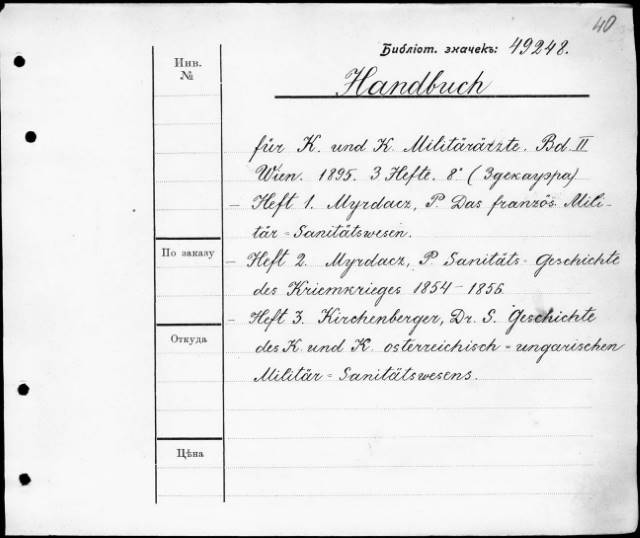 40
Библіот. значекъ: 49248.
Инв.
№
Handbuch
für K. und K. Militärärzte. Bd. II
Wien. 1895. 3 Hefte. 8° (Здекауэра)
– Heft 1. Myrdacz, P. Das französ. Mili-
tär=Sanitätswesen.
По заказу
– Heft 2. Myrdacz, P Sanitäts=Geschichte
des Kriemkrieges 1854–1856
– Heft 3. Kirchenberger, Dr. S. Geschichte
Откуда
des K. und K. österreichisch=ungarischen
Militär=Sanitätswesens.
Цѣна